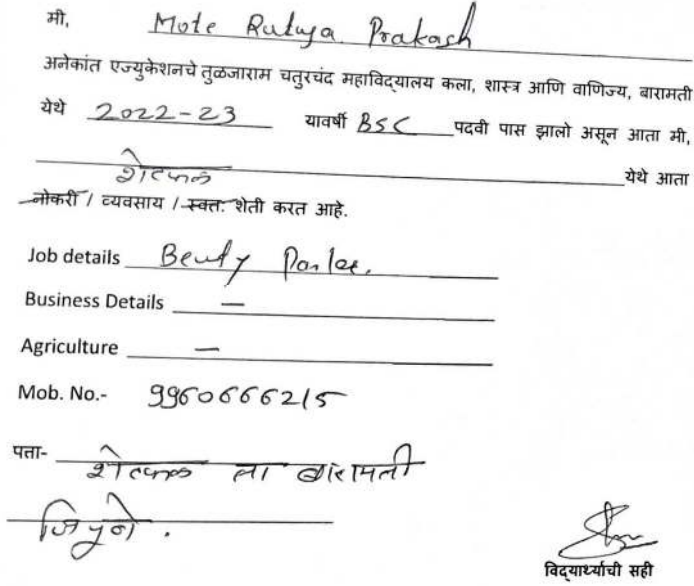 मी, Mote Rutuja Prakash
अनेकांत एज्युकेशनचे तुळजाराम चतुरचंद महाविद्यालय कला, शास्त्र आणि वाणिज्य, बारामती
येथे 2022-23 यावर्षी BSC पदवी पास झालो असून आता मी,
शेटफळ येथे आता
नोकरी / व्यवसाय / स्वतः शेती करत आहे.
Job details Beuty Parlar.
Business Details —
Agriculture —
Mob. No.- 9960666215
पत्ता- शेटफळ ता बारामती
जि पुणे .
विद्यार्थ्याची सही